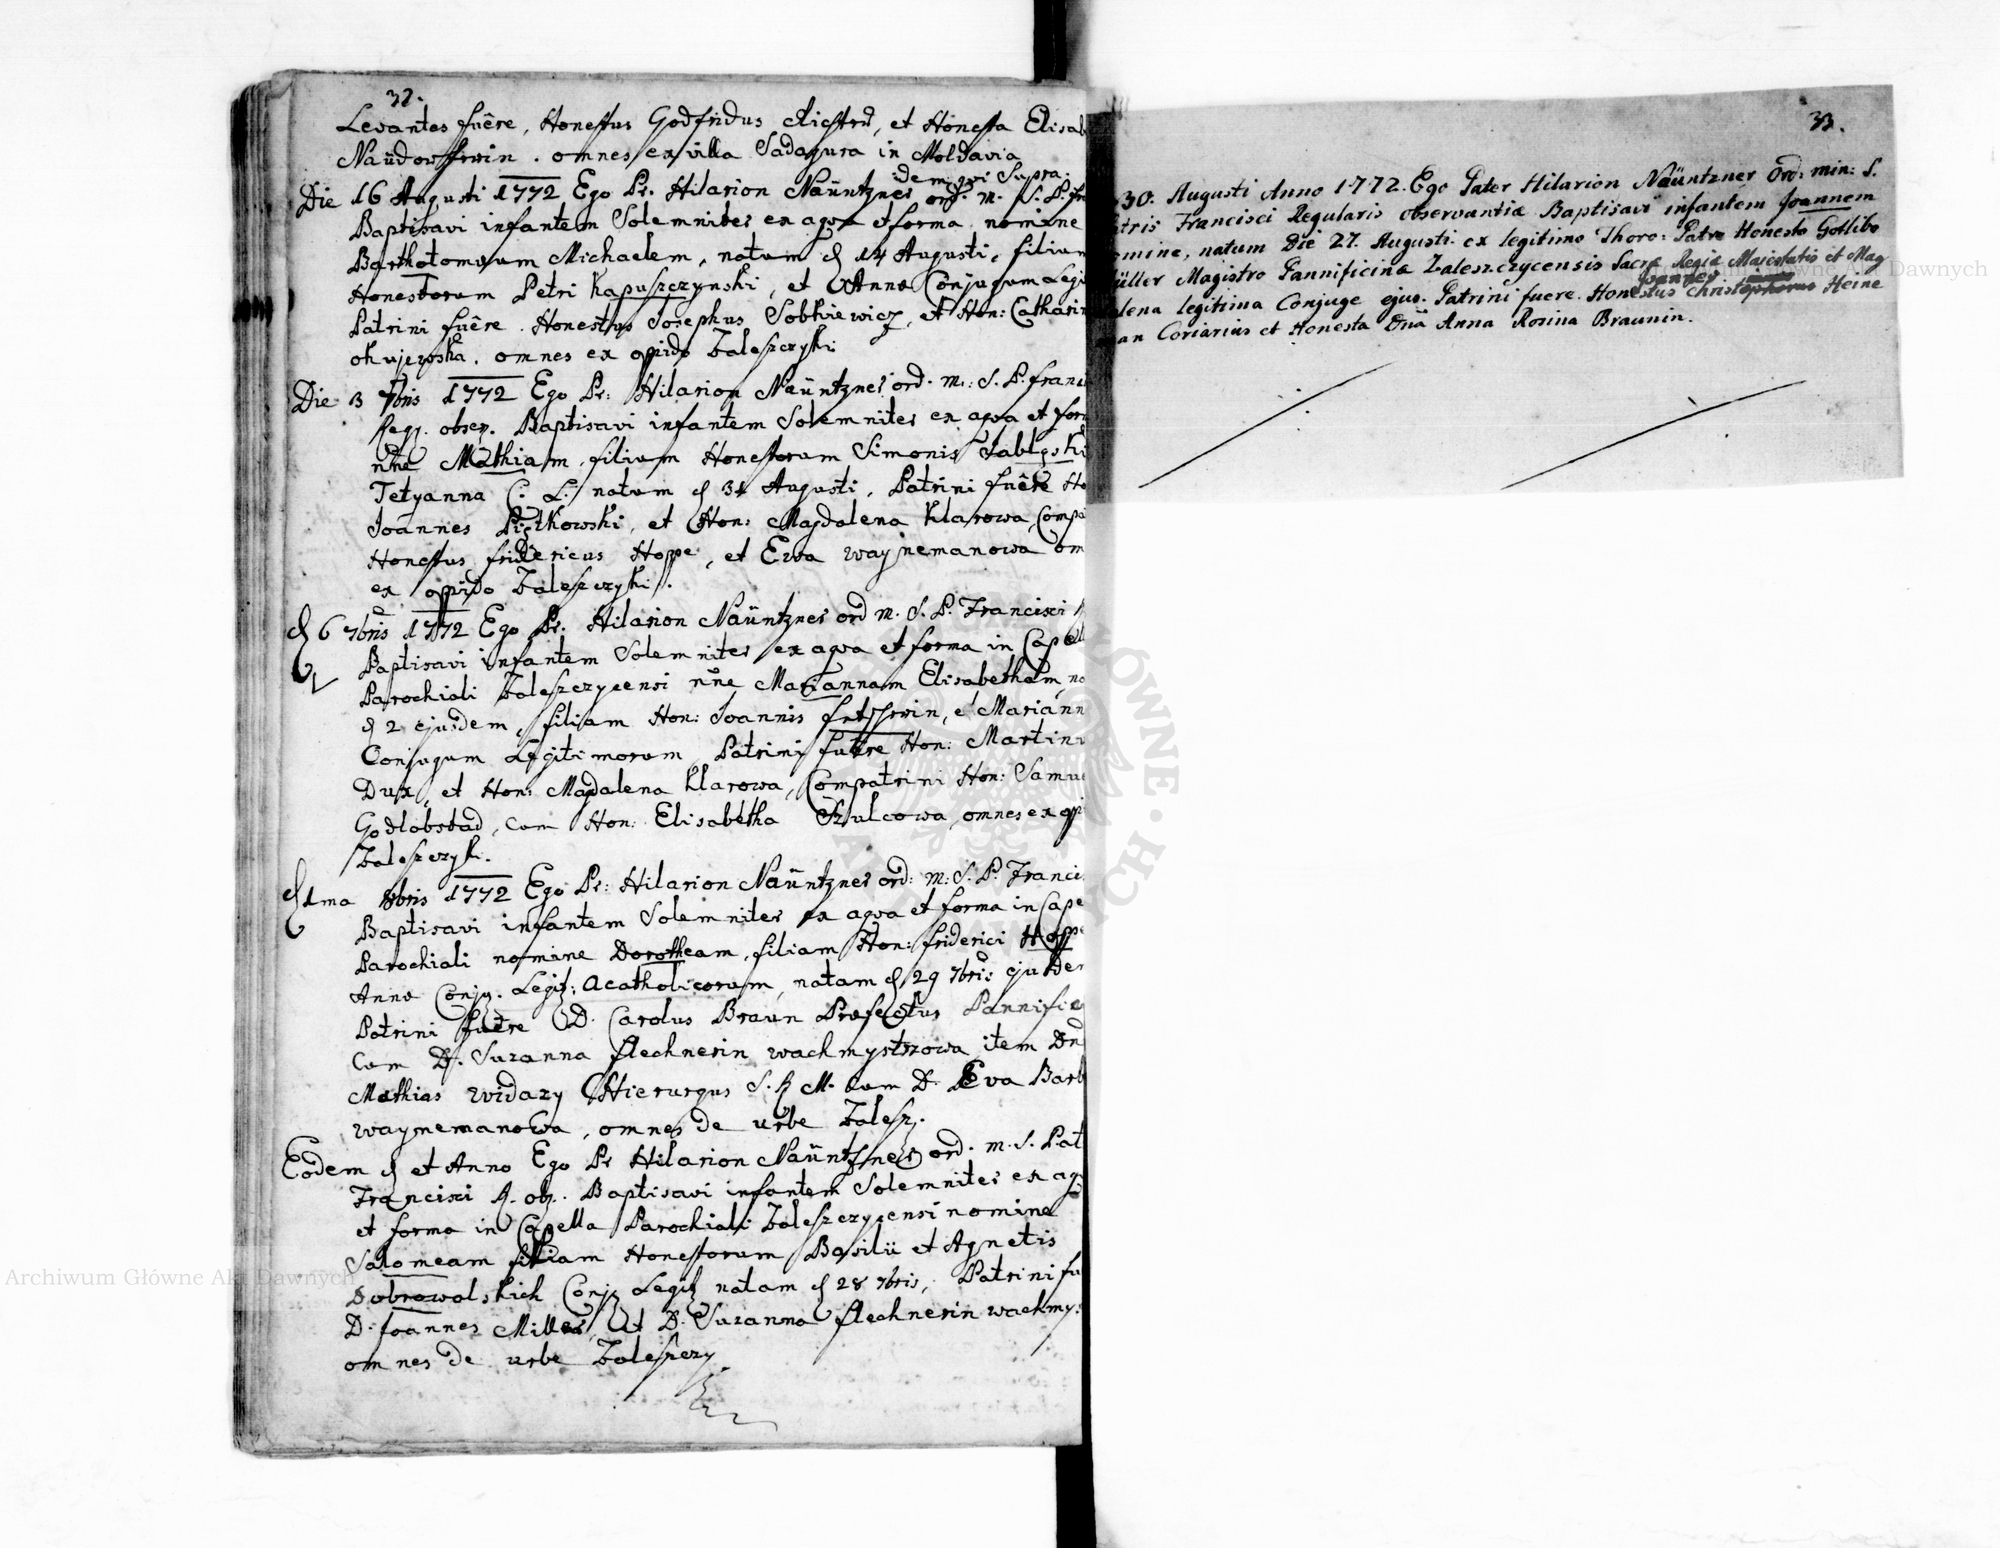 32.
Levantes fuêre, Honestus Godfridus et Honesta Elisab
omnes ex villa Sadagura in Moldavia
idem qui Supra.
Die 16 Augusti 1772 Ego Pr. Hilarion Naüntzner ord. m. S. P. fra
Baptisavi infantem Solemniter ex aqva et forma nomine
Bartholomæum Michaelem, natum d 14 Augusti, filium
Honestorum Petri Kapuszczynski, et Annæ Conjugum Legi
Patrini fuêre. Honestus Josephus Sobkiewicz, et Hon: Catharin
omnes ex oppido Zaleszczyki
Die 3 7bris 1772 Ego Pr: Hilarion Naüntzner ord. m: S. P. fran
Reg. obser. Baptisavi infantem Solemniter ex aqva et for
nne Mathiam, filium Honestorum Simonis
Tetyanna C: L: natum d 31 Augusti, Patrini fuêre Ho
Joannes Piątkowski, et Hon: Magdalena Klarowa, Compa
Honestus fridericus Hoppe, et Ewa waynemanowa om
ex oppido Zaleszczyki.
d 6 7bris 1772 Ego Pr. Hilarion Naüntzner ord m. S. P. Francisci
Baptisavi infantem Solemniter ex aqva et forma in Capell
Parochiali Zaleszczycensi nne Mariannam Elisabetham, na
d 2 ejusdem, filiam Hon: Joannis et Mariann
Conjugum Legitimorum, Patrini fuêre Hon: Martinu
Dux, et Hon: Magdalena Klarowa, Compatrini Hon: Samue
Godlobstad, cum Hon: Elisabetha Szulcowa, omnes ex oppi
Zaleszczyk.
d 1ma 8bris 1772 Ego Pr: Hilarion Naüntzner ord: m: S. P. Franci
Baptisavi infantem Solemniter ex aqva et forma in Cape
Parochiali nomine Dorotheam, filiam Hon: friderici Hoppe
Annæ Conjg. Legit: acatholicorum, natam d 29 7bris ejusdem
Patrini fuêre D. Carolus Braün Præfectus Pannific
Cum D. Suzanna flechnerin wachmystrzowa item Dn
Mathias widazy Chierurgus S. R. M. cum D. Eva Barb
waynemanowa, omnes de urbe Zalesz.
Eodem d et Anno Ego Pr Hilarion Naüntzner ord. m. S. Pat
Francisci R. ob. Baptisavi infantem Solemniter ex aq
et forma in Capella Parochiali Zaleszczycensi nomine
Salomeam filiam Honestorum Basilii et Agnetis
Dobrowolskich Conj Legit natam d 28 7bris, Patrini fu
D. Joannes Miller, et D. Suzanna flechnerin wachmys
omnes de urbe Zaleszczy
33.
30. Augusti Anno 1772. Ego Pater Hilarion Naüntzner Ord: min: S.
tris Francisci Regularis observantiæ Baptisavi infantem Joannem
mine, natum Die 27. Augusti ex legitimo Thoro: Patre Honesto Gottlibo
üller Magistro Pannificinæ Zaleszczycensis Sacræ Regiæ Maiestatis et Mag
Joannes
lena legitima Conjuge ejus. Patrini fuere. Honestus Christophorus Heine
an Coriarius et Honesta Dnã Anna Rosina Braunin.
Archiwum Główne Akt Dawnych
Archiwum Główne Akt Dawnych